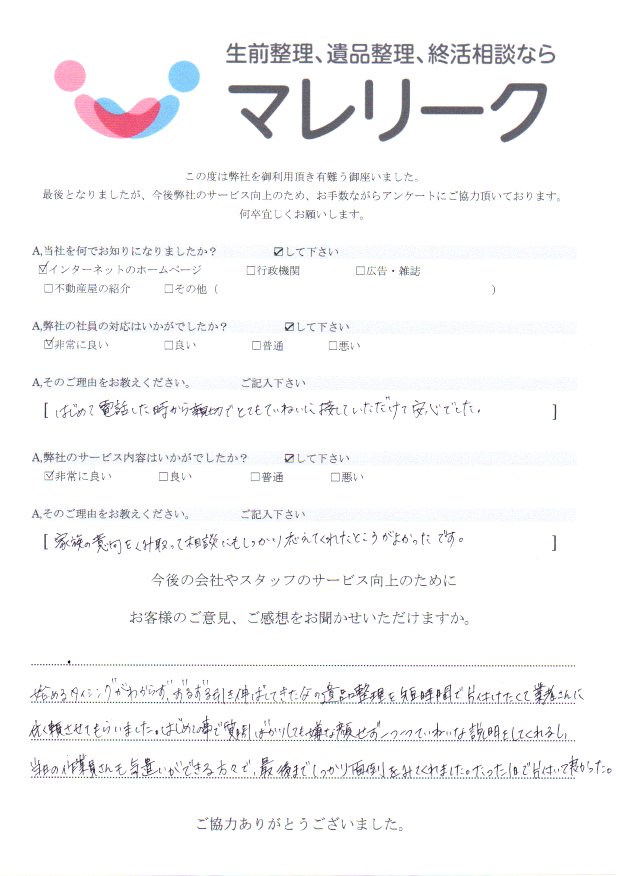 生前整理、遺品整理、終活相談なら
マレリーク
この度は弊社を御利用頂き有難う御座いました。
最後となりましたが、今後弊社のサービス向上のため、お手数ながらアンケートにご協力頂いております。
何卒宜しくお願いします。
A,当社を何でお知りになりましたか？ ☑して下さい
☑インターネットのホームページ □行政機関 □広告・雑誌
□不動産屋の紹介 □その他（ ）
A,弊社の社員の対応はいかがでしたか？ ☑して下さい
☑非常に良い □良い □普通 □悪い
A,そのご理由をお教えください。 ご記入下さい
[ はじめて電話した時から親切でとてもていねいに接していただけて安心でした。 ]
A,弊社のサービス内容はいかがでしたか？ ☑して下さい
☑非常に良い □良い □普通 □悪い
A,そのご理由をお教えください。 ご記入下さい
[ 家族の意向をくみ取って相談にもしっかり応えてくれたところがよかったです。 ]
今後の会社やスタッフのサービス向上のために
お客様のご意見、ご感想をお聞かせいただけますか。
始めるタイミングがわからず、ずるずる引き伸ばしてきた父の遺品整理を短時間で片付けたくて業者さんに
依頼させてもらいました。はじめての事で質問ばかりしても嫌な顔せず一つ一つていねいな説明をしてくれるし
当日の作業員さんも気遣いができる方々で、最後までしっかり面倒をみてくれました。たった1日で片付いて良かった。
ご協力ありがとうございました。